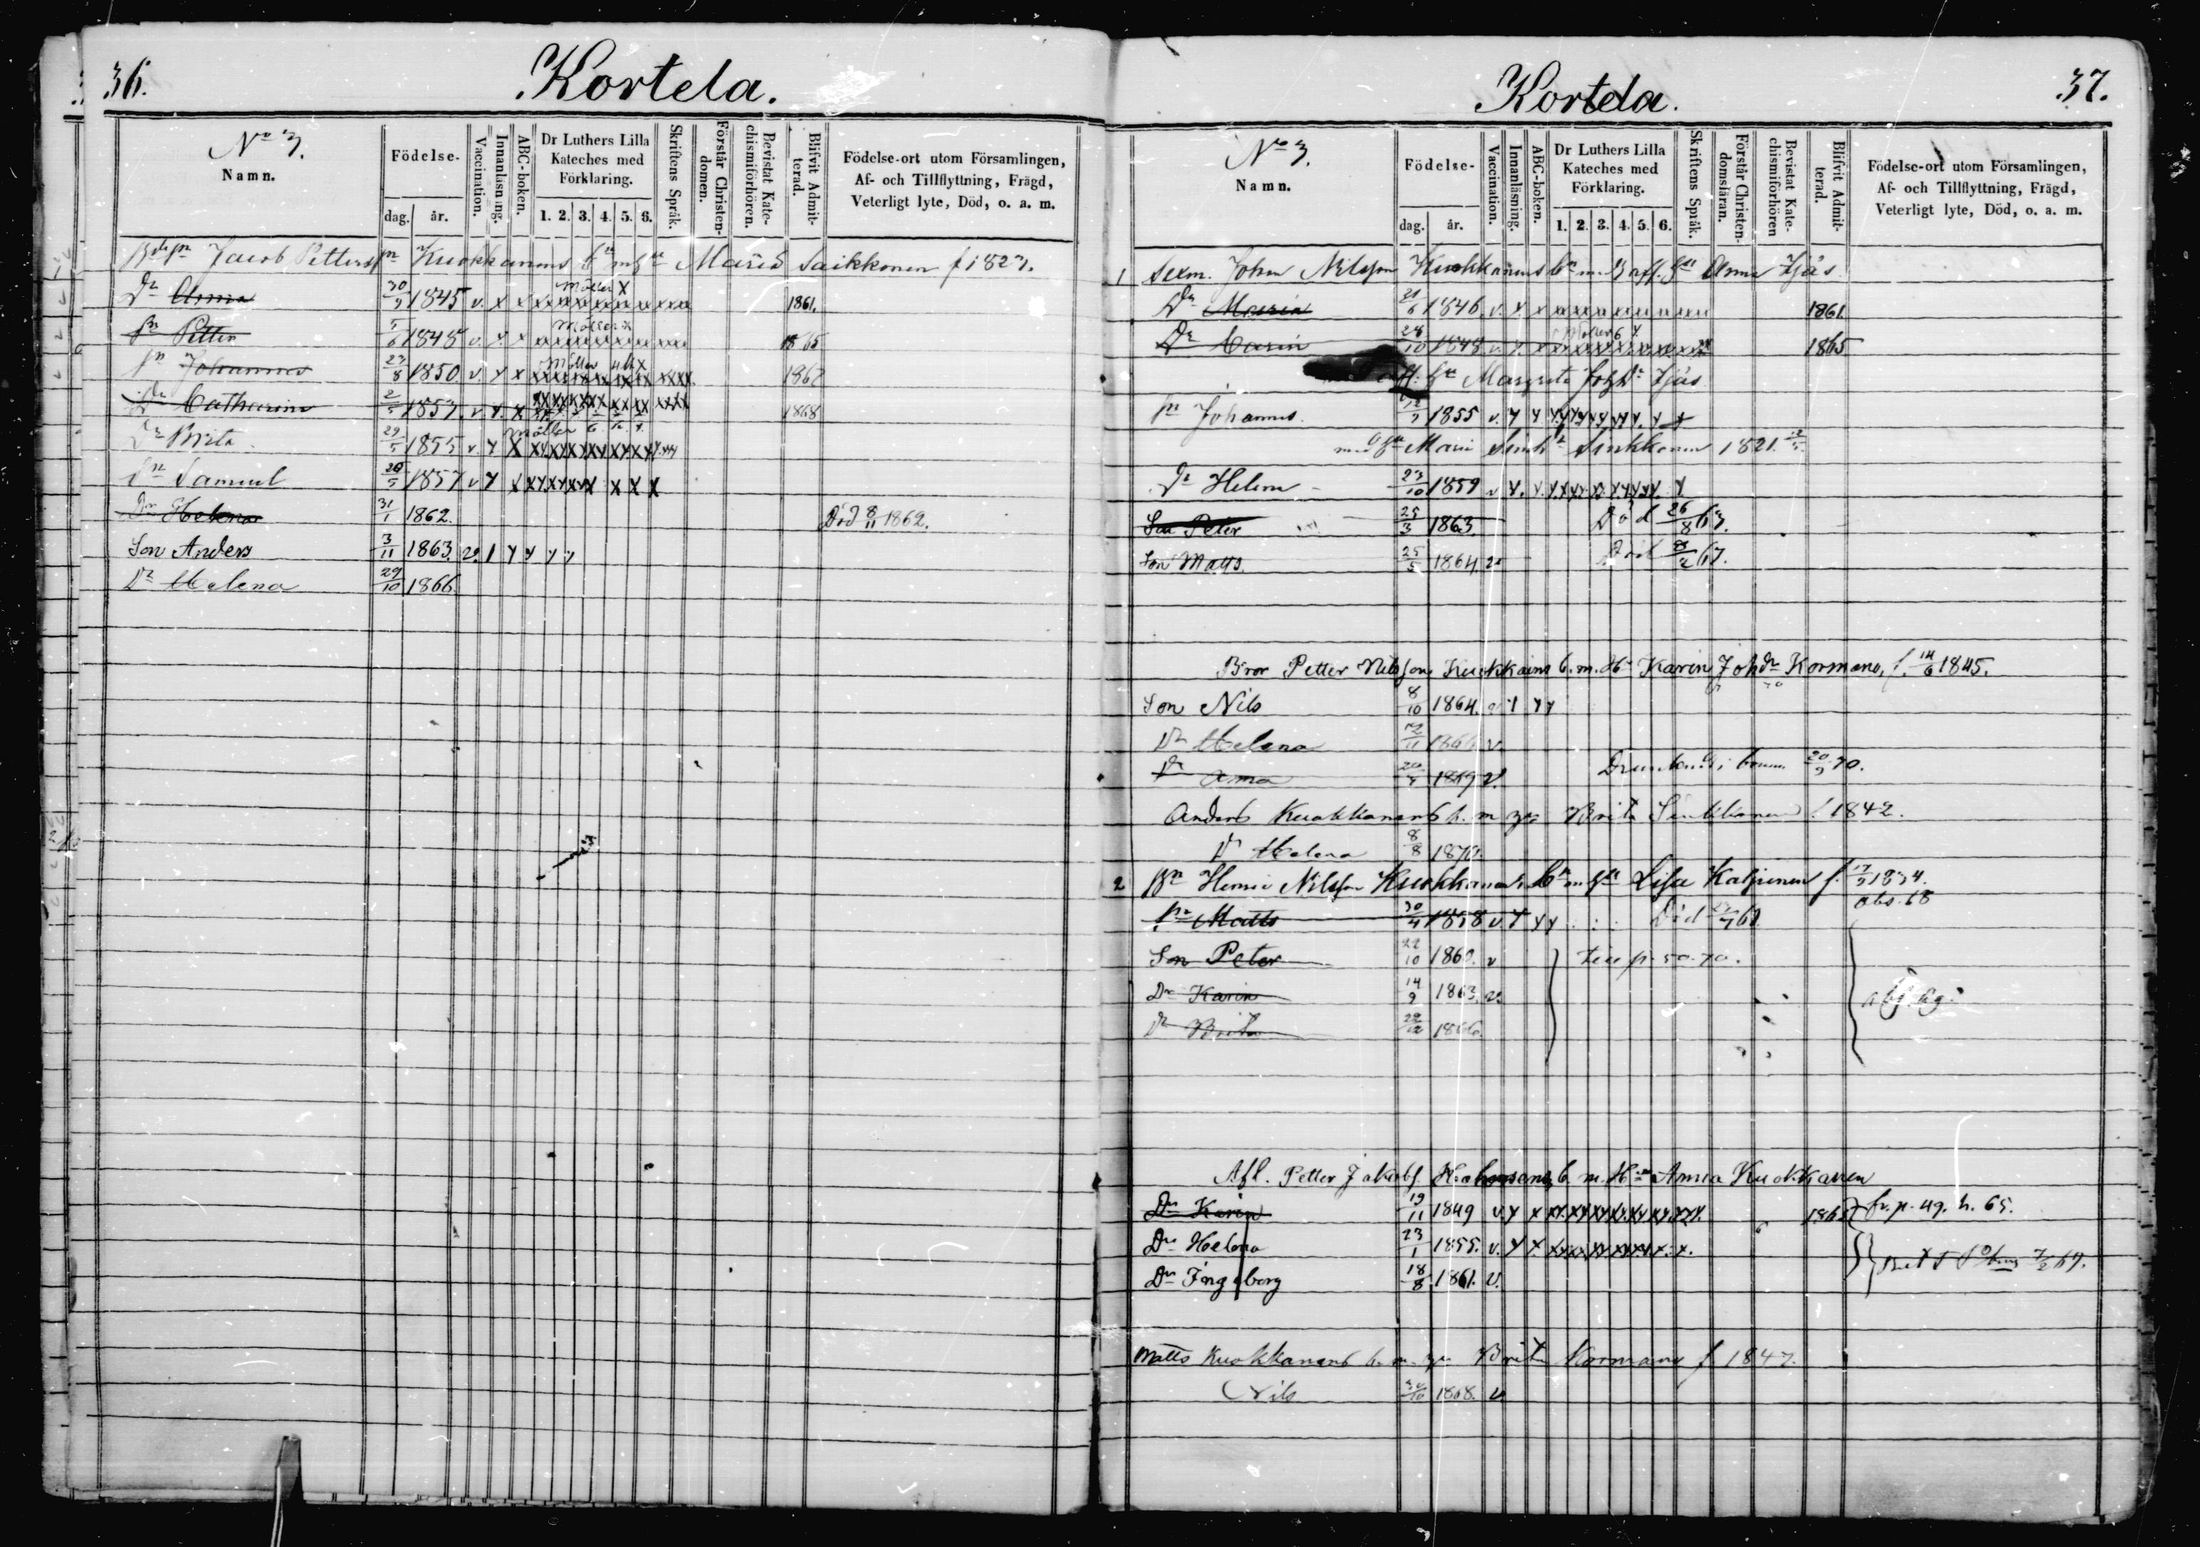 36.
Kortela.
No 3.
Namn.
Födelse-
dag. år.
Vaccination.
Innanläsning.
ABC-boken.
Dr Luthers Lilla Kateches med Förklaring.
1. 2. 3. 4. 5. 6.
Skriftens Språk.
Förstår Christen-domen.
Bevistat Kate-chismiförhören.
Blifvit Admit-terad.
Födelse-ort utom Församlingen,
Af- och Tillflyttning, Frägd,
Veterligt lyte, Död, o. a. m.
Jacob Petters Kuokkanens bn m hu Maria Saikkonen f 1823.
Dr Anna 30/9 1845 v. x 1861.
Möller x
sn Petter 1848 v. 1865
Möller x
sn Johannes 23/8 1850 v. y x 1867
Möller
Dr Catharina 2/5 1853 v. y. x 1868
Dr Brita 29/5 1855 v. y x
Möller
sn Samuel 20/5 1857 v y x
Dr Helena 31/1 1862. Död 8/11 1862.
Son Anders 3/11 1863 v. 1 y y y y
Dr Helena 29/10 1866.
37.
Kortela.
No 3.
Namn.
Födelse-
dag. år.
Vaccination.
Innanläsning.
ABC-boken.
Dr Luthers Lilla Kateches med Förklaring.
1. 2. 3. 4. 5. 6.
Skriftens Språk.
Förstår Christen-domsläran.
Bevistat Kate-chismiförhören
Blifvit Admit-terad.
Födelse-ort utom Församlingen,
Af- och Tillflyttning, Frägd,
Veterligt lyte, Död, o. a. m.
1 Sexm. Johan Nilsson Kuokkanens bn m. afl. hu Anna Jjäs.
Dr Maria 1846 v. x x 1861
Dr Carin 28/10 1848 1865
Möller
afl. hu Margreta Johdr Jjäs
sn Johannes 1855 v. y y
med hu Maria Sinkkonen 1821.
Dr Helena 23/10 1859 v y.
Son Peter 25/3 1863 Död 26/8 63.
Son Matts. 25/5 1864 v Död 8/2 67.
Bror Petter Nilsson Kuokkains b. m. Hu Karin Johdr Kormano, f. 14/6 1845.
Son Nils 8/10 1864. v 1 y y
Dr Helena 12/11 1866 v.
Dr Anna 20/5 1869 v. 20/9 70.
Anders Kuokkanens b. m Brita Sinkkonen f 1842.
Dr Helena 8/8 1870.
2 Henric Nilsson Kuokkanens bn m hu Lisa Katjunen f. 1834.
abs. 68
sn Matts 30/4 1858 v. y y y Död 68
Son Peter 22/10 1860. v p. 50. 70.
Dr Karin 14/9 1863. v.
Dr Brita 22/12 1866.
Afl. Petter Jakobs. b. m. Hu Anna Kuokkanen
Dr Karin 19/11 1849 v. y x 1865 fr. p. 49. h. 65.
Dr Helena 23/1 1855. v. y x
Dr Ingeborg 18/8 1861. v. 7/2 67.
Matts Kuokkanens b. m. Brita Kormano f 1847.
Nils 1868. v.